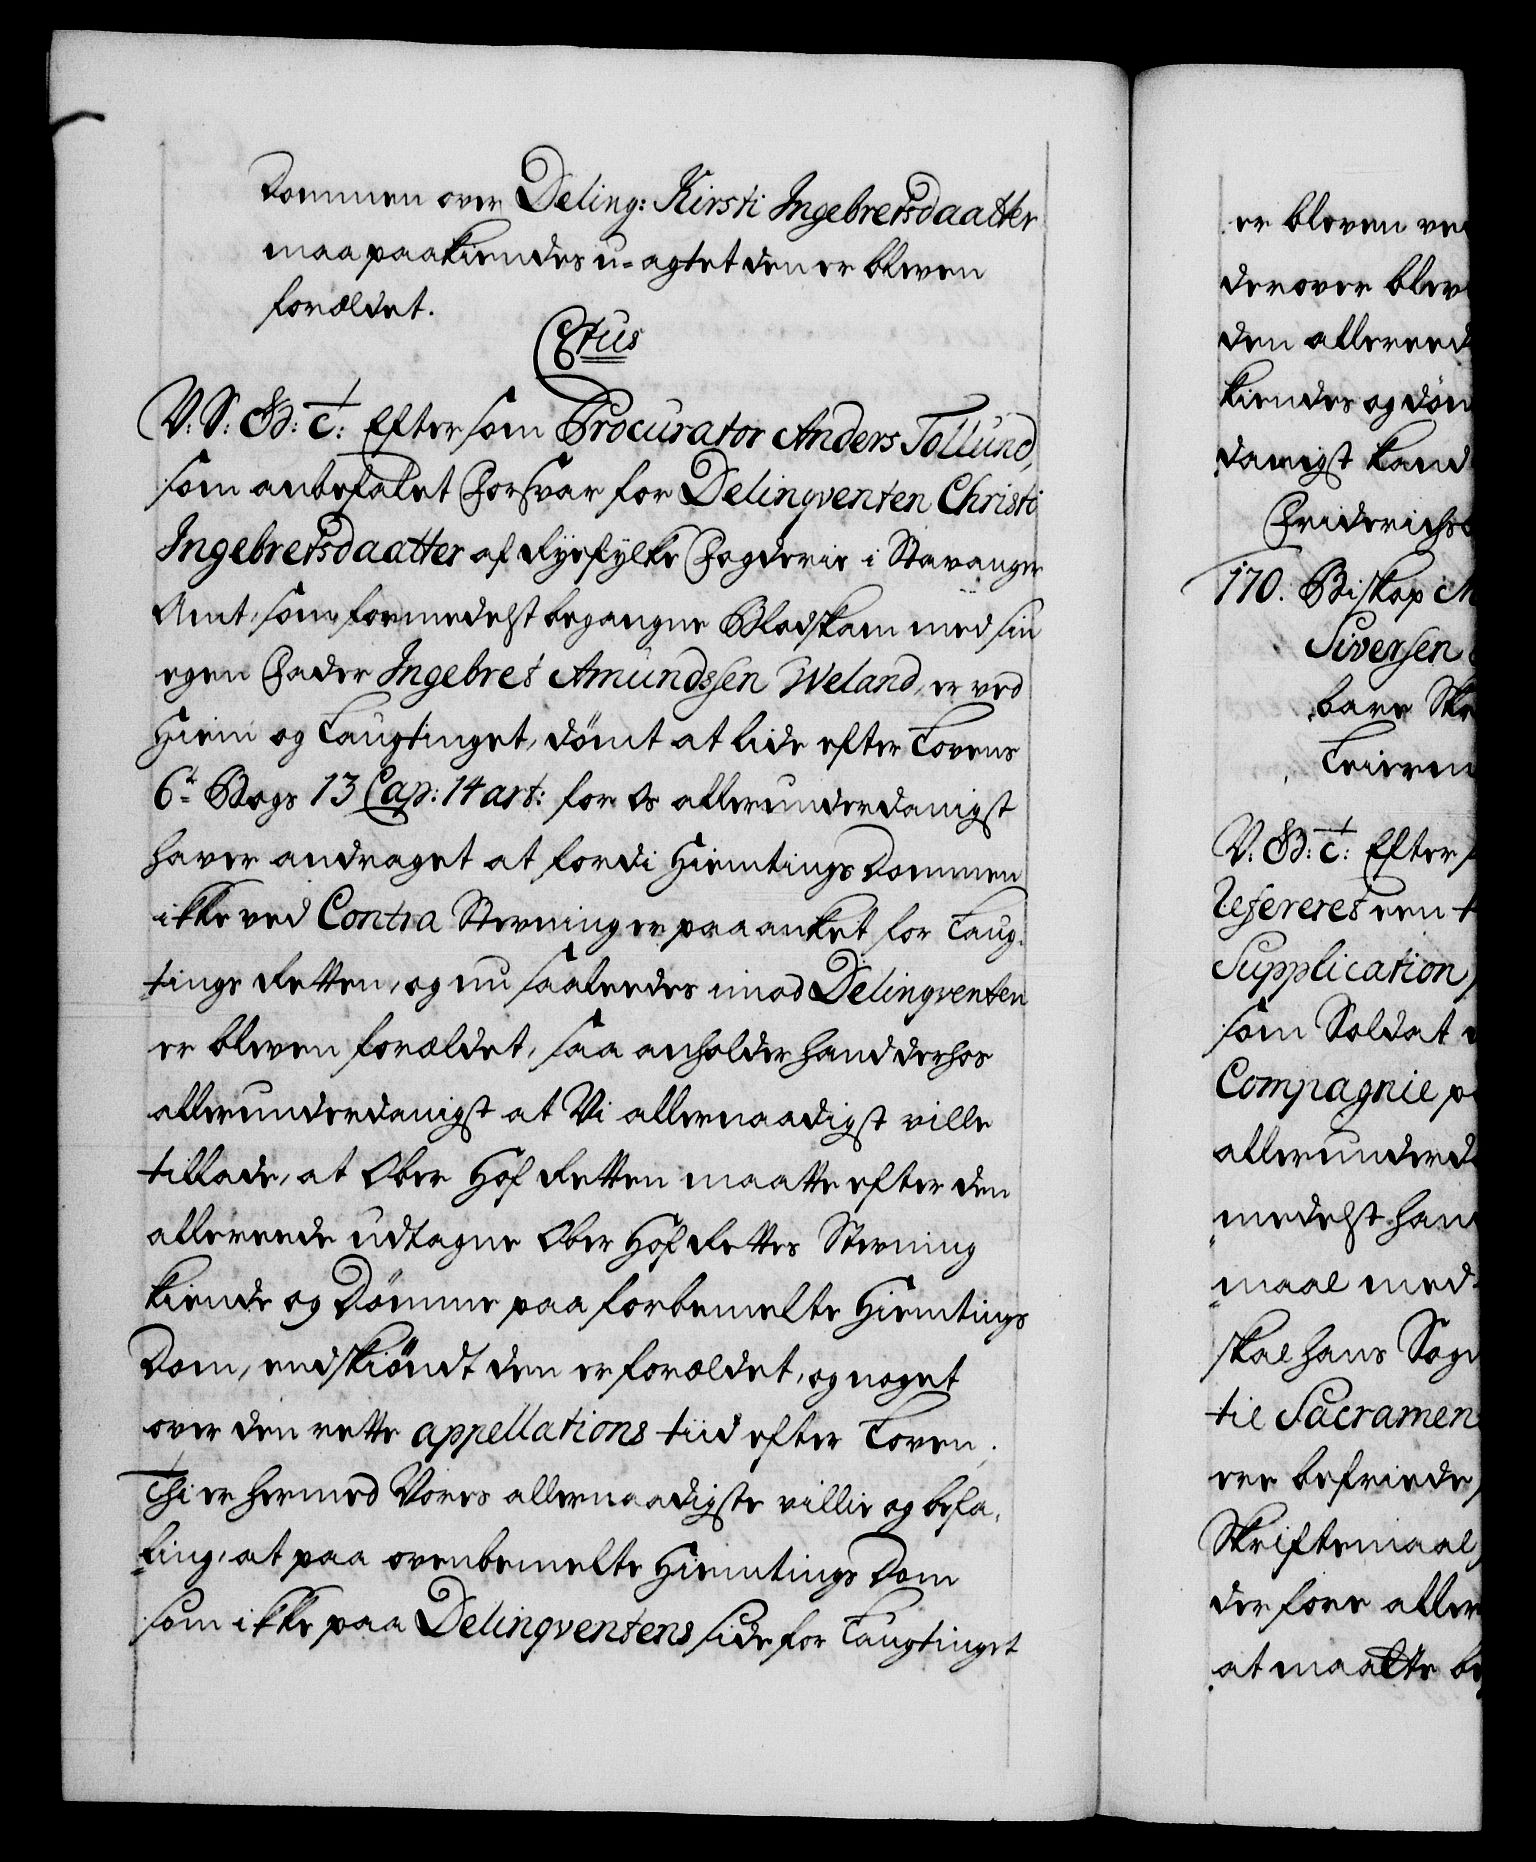 Dommen over Deling: Kirsti Ingebretsdaatter
maa paakiendes u-agtet den er bleven
forældet.
C6tus
V. S. G. B: c: Eftersom Procurator Anders Tollund,
som anbefalet Forsvar for Delinqventen Christi
Ingebretsdaatter af Ryefylke Fogderie i Stavanger
Amt, som formedelst begangne Blodskam med sin
egen Fader Ingebret Amundssen Weland, er ved
Hiem og Laugtinget, dömt at lide efter Lovens
6te Bogs 13 Cap: 14 art: for Os allerunderdanigst
haver andraget at fordi Hiemtings Dommen
ikke ved Contra Stevning er paaanket for Laug-
tings Retten, og nu saaleedes imod Delinqventen
er bleven forældet, saa anholder hand derhos
allerunderdanigst at Vi allernaadigst ville
tillade, at Ober Hof Retten maatte efter den
allereede udtagne Ober Hof Rettes Stevning
kiende og Dömme paa forbemelte Hiemtings
Dom, endskiöndt den er forældet, og noget
over den rette appellations tiid efter Loven;
Thi er hermed Vores allernaadigste villie og befa-
ling, at paa ovenbemelte Hiemtings Dom
som ikke paa Delinqventens side for Laugtinget
er bleven
derover
den allereed
kiendes og döm
danigst kand
Friderichs
170. Biskop
Siversen
bare
V: G. B: c: Efter
Refereret een
Supplication
som Soldat
Compagnie
allerunderda
medelst hand
maal med
skal hans Sogn
til Sacramen
ere befriede
Skriftemaal
derfore aller
at maatte